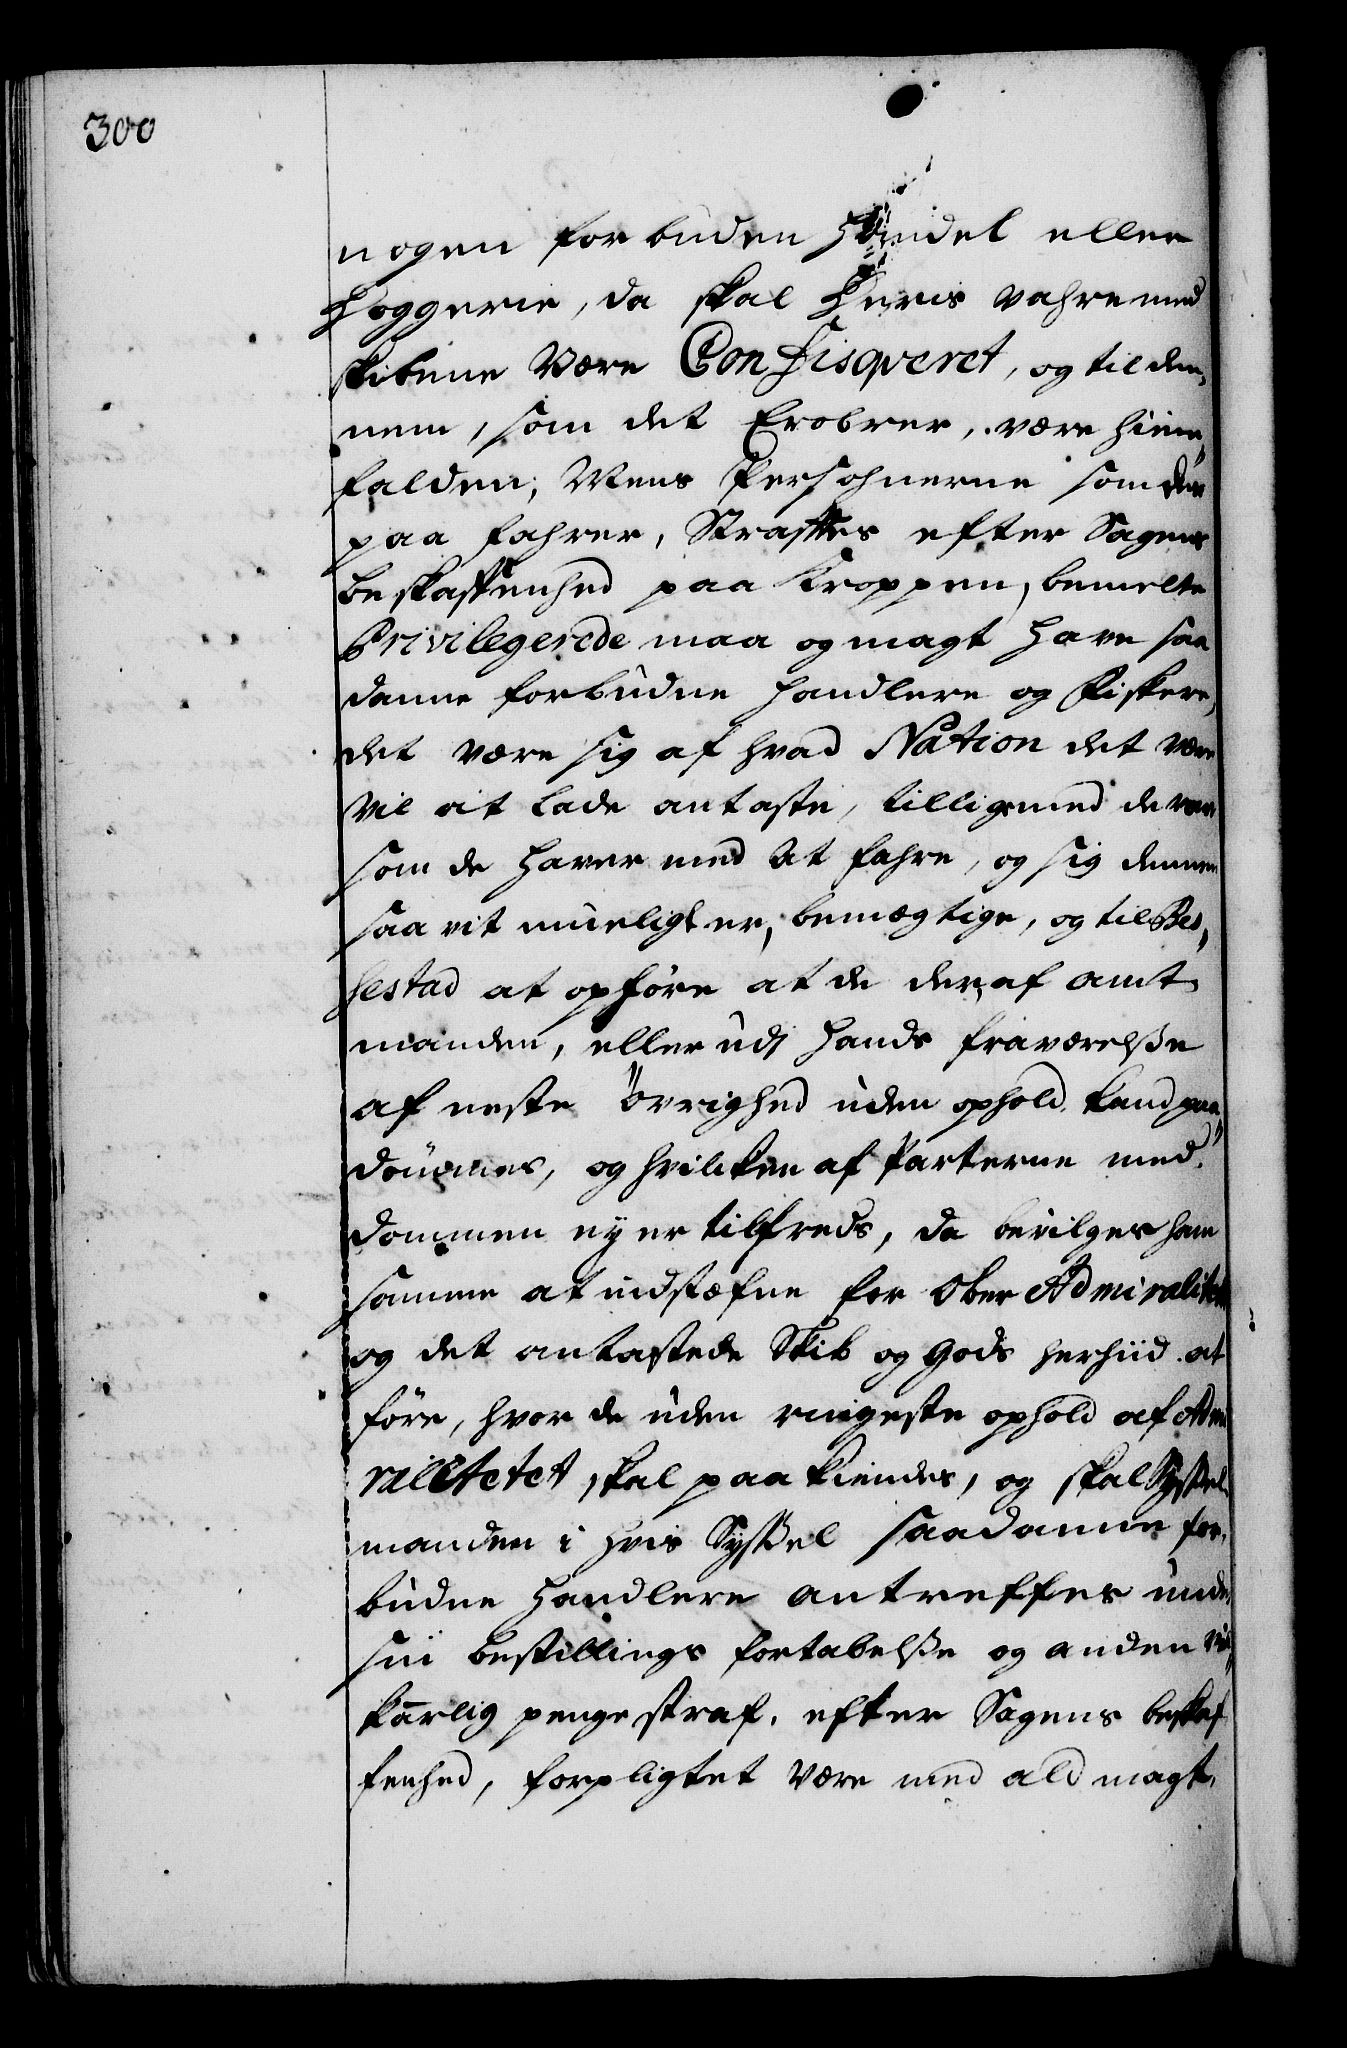 300
nogen forbuden Handel eller
Hoggerie, da skal deris vahre med
skibene være Confisqveret, og til den,,
nem, som det Erobrer, være hiem,,
falden, Mens Persohnerne som der
paa fahrer, Straffes efter Sagens
beskaffenhed paa Kroppen, bemelte
Privilegerede maa og magt have saa
danne forbudne handlere og Fiskere,
det være sig af hvad Nation det være
vil at lade antaste, tilligemed de vare
som de haver med at fahre, og sig dennem
saa vit mueligt er, bemægtige, og til Bes,,
sestad at opföre at de der af amt
manden, eller udj hands fraværelsse
af neste Övrighed uden ophold kand paa,,
dömmes, og hvilcken af Parterne med
dommen ey er tilfreds, da bevilges ham
samme at indstefne for Ober Admiralitetet
og det antastede Skib og Gods herhiid at
före, hvor de uden ringeste ophold af Admi
ralitetet skal paakiendes, og skal Syssel
manden i hvis Syssel saadanne for,
budne Handlere antreffes under
sin bestillings fortabelsse og anden vil,,
kaarlig penge straf, efter Sagens beskaf
fenhed, forpligtet være med ald magt,